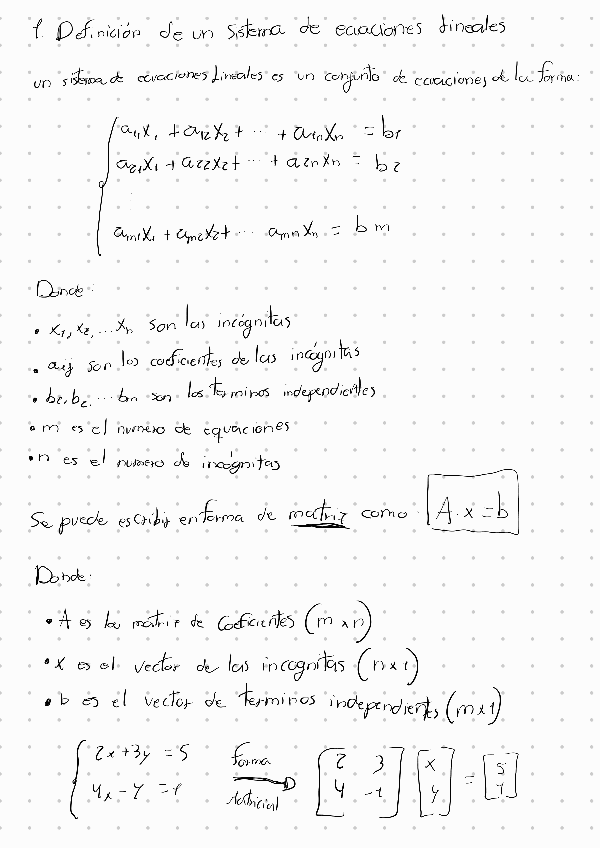 1. Definición de un sistema de ecuaciones lineales
un sistema de ecuaciones Lineales es un conjunto de ecuaciones de la forma:
a11x1 + a12x2 + ... + a1nxn = b1
a21x1 + a22x2 + ... + a2nxn = b2
am1x1 + am2x2 + ... amnxn = bm
Donde:
• x1, x2, ... xn son las incógnitas
• aij son los coeficientes de las incógnitas
• b1, b2, ... bn son los terminos independientes
• m es el numero de equaciones
• n es el numero de incógnitas
Se puede escribir en forma de matriz como A·x = b
Donde:
• A es la matriz de coeficientes (m x n)
• x es el vector de las incognitas (n x 1)
• b es el vector de terminos independientes (m x 1)
2x + 3y = 5 forma [2 3] [x] = [5]
4x - y = 1 Matricial [4 -1] [y] [1]